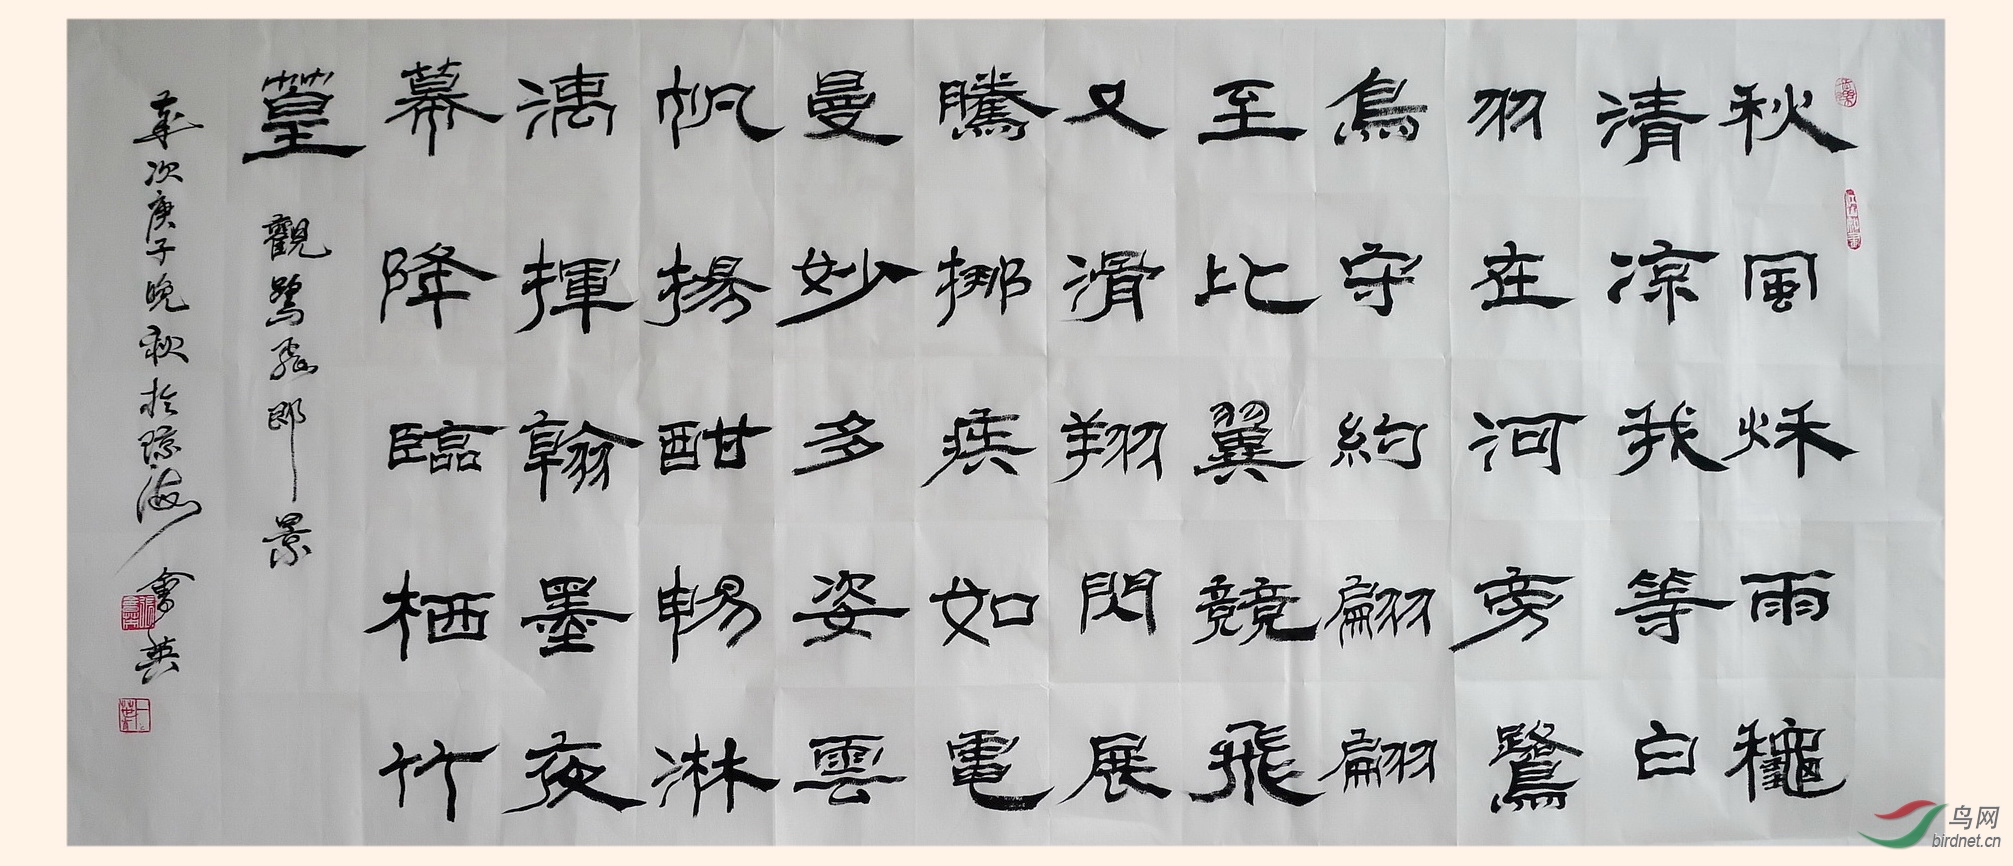 秋風秌雨穐
清凉我等白
羽在河旁鷺
鳥守約翩翩
至比翼競飛
又滑翔閃展
騰挪疾如電
曼妙多姿雲
帆揚酣暢淋
漓揮翰墨夜
幕降臨栖竹
篁 觀鷺飛即景
歲次庚子晚秋於琼海 會英
鸟网
birdnet.cn